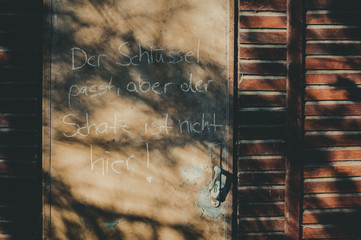 Der Schlüssel
passt, aber der
Schatz ist nicht
hier!